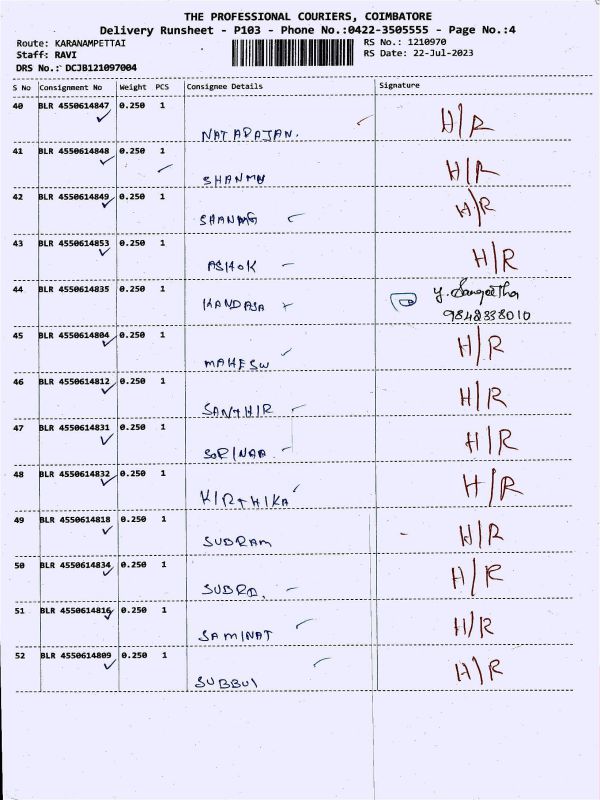 THE PROFESSIONAL COURIERS, COIMBATORE
Delivery Runsheet - P103 - Phone No.:0422-3505555 - Page No.:4
Route: KARANAMPETTAI RS No.: 1210970
Staff: RAVI RS Date: 22-Jul-2023
DRS No.: DCJB121097004
S No Consignment No Weight PCS Consignee Details Signature
40 BLR 4550614847 0.250 1 H/R
NATARAJAN.
41 BLR 4550614848 0.250 1 H/R
SHANMU
42 BLR 4550614849 0.250 1 H/R
SHANMG
43 BLR 4550614853 0.250 1 H/R
ASHOK
44 BLR 4550614835 0.250 1 Y. Sangeetha
KANDASA 9848338010
45 BLR 4550614804 0.250 1 H/R
MAHESW
46 BLR 4550614812 0.250 1 H/R
SANTHIR
47 BLR 4550614831 0.250 1 H/R
48 BLR 4550614832 0.250 1 H/R
KIRTHIKA
49 BLR 4550614818 0.250 1 H/R
SUDRAM
50 BLR 4550614834 0.250 1 H/R
SUBRA.
51 BLR 4550614816 0.250 1 H/R
SAMINAT
52 BLR 4550614809 0.250 1 H/R
SUBBUI